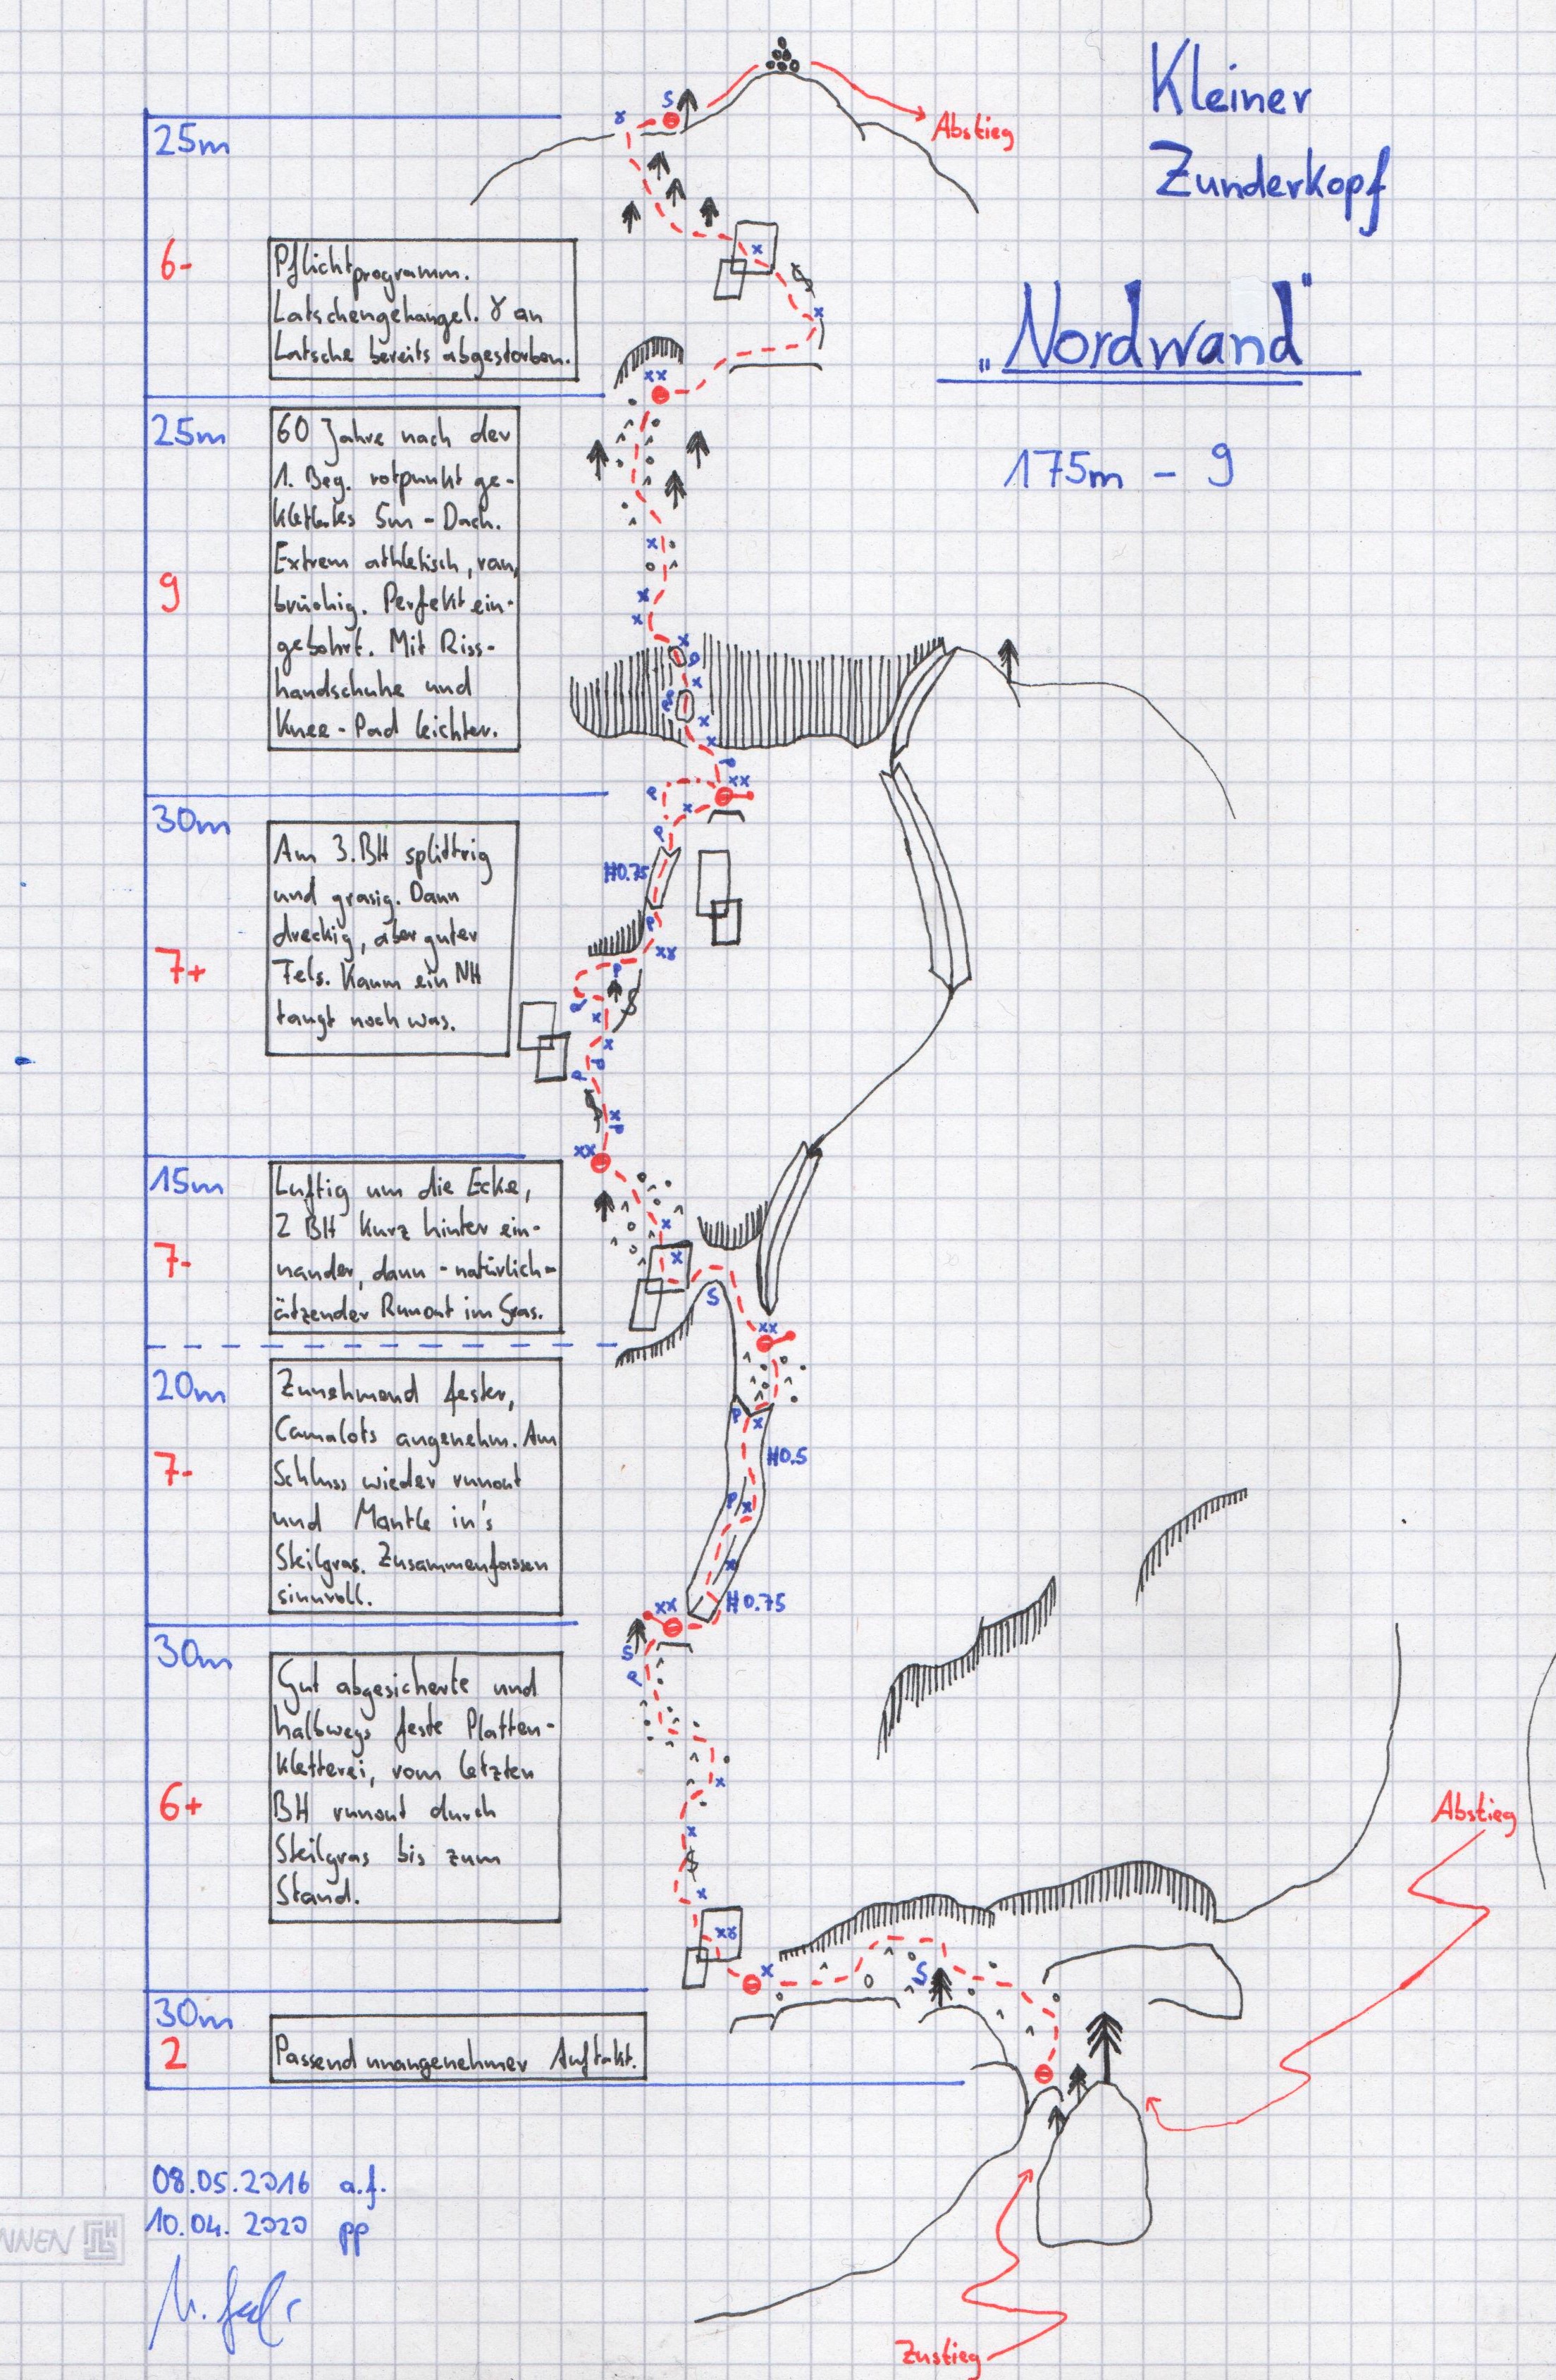 Kleiner
Zunderkopf
„Nordwand"
175m - 9
S
Abstieg
25m
6-
Pflichtprogramm.
Latschengehangel. ɣ an
Latsche bereits abgestorben.
25m
9
60 Jahre nach der
1. Beg. rotpunkt ge-
klettertes 5m - Dach.
Extrem athletisch, rau,
brüchig. Perfekt ein-
gebohrt. Mit Riss-
handschuhe und
Knee-Pad leichter.
30m
7+
Am 3. BH splittrig
und grasig. Dann
dreckig, aber guter
Fels. Kaum ein NH
taugt noch was.
H0.75
15m
7-
Luftig um die Ecke,
2 BH kurz hinter ein-
nander, dann - natürlich -
ätzender Runout im Gras.
S
20m
7-
Zunehmend fester,
Camalots angenehm. Am
Schluss wieder runout
und Mantle in's
Steilgras. Zusammenfassen
sinnvoll.
H0.5
H0.75
30m
6+
Gut abgesicherte und
halbwegs feste Platten-
kletterei, vom letzten
BH runout durch
Steilgras bis zum
Stand.
S
Abstieg
S
30m
2
Passend unangenehmer Auftakt.
08.05.2016 a.f.
10.04.2020 pp
Zustieg